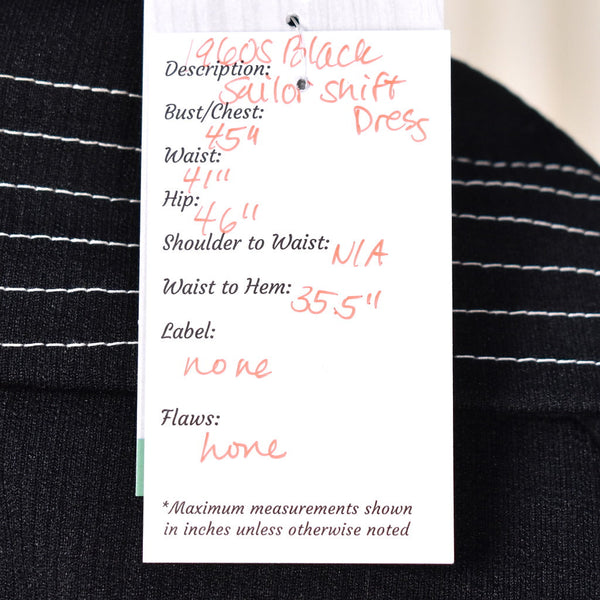 1960s Black
Description:
Sailor Shift
Bust/Chest:
Dress
45"
Waist:
41"
Hip:
46"
Shoulder to Waist: N/A
Waist to Hem: 35.5"
Label:
none
Flaws:
none
*Maximum measurements shown
in inches unless otherwise noted